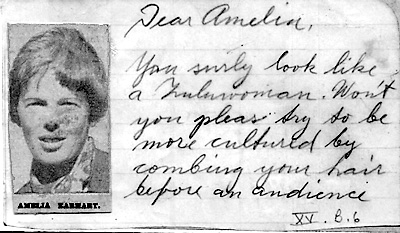 Dear Amelia,
You surly look like
a Zuluwoman. Won't
you pleas try to be
more cultured by
combing your hair
before an audience
AMELIA EARHART.
XV. B. 6